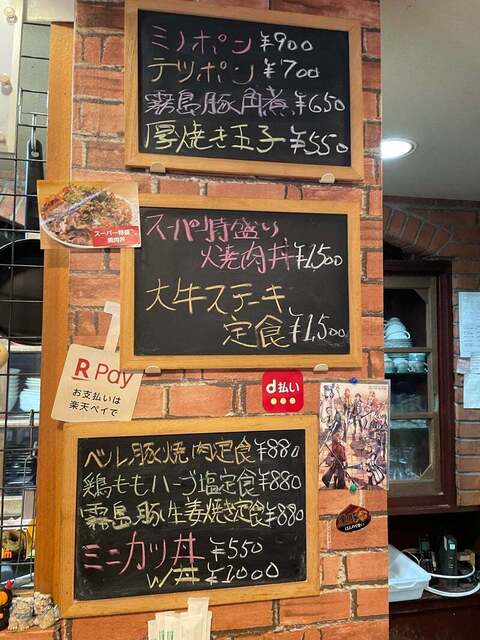 ミノポン ¥900
テッポン ¥700
霧島豚角煮 ¥650
厚焼き玉子 ¥550
スーパー特盛
焼肉丼
スーパー特盛り
焼肉丼 ¥1,500
大牛ステーキ
定食 ¥1,500
R Pay
お支払いは
楽天ペイで
d払い
ベル豚焼肉定食 ¥880
鶏ももハーブ塩定食 ¥880
霧島豚生姜焼き定食 ¥880
ミニカツ丼 ¥550
W丼 ¥1,000